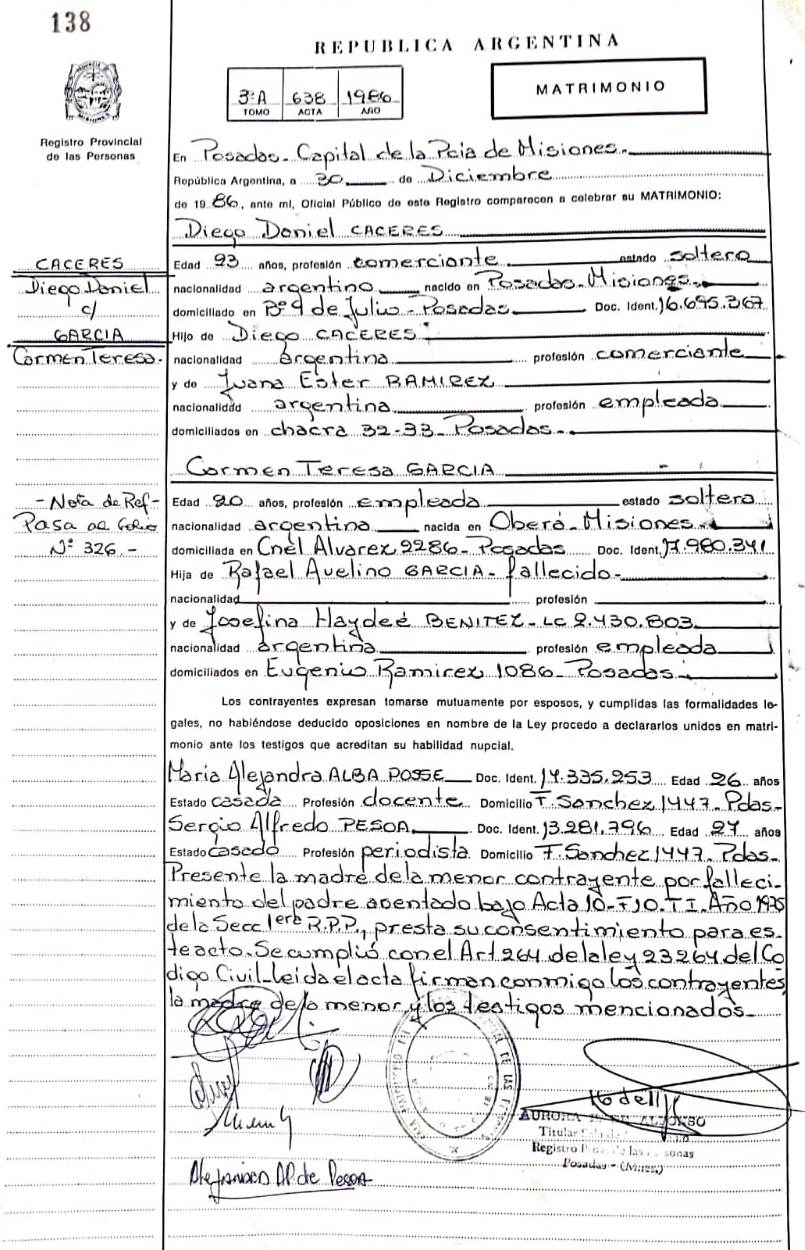 138
REPUBLICA ARGENTINA
3ºA 638 1986
TOMO ACTA AÑO
MATRIMONIO
Registro Provincial
de las Personas
En Posadas - Capital de la Pcia de Misiones.-
República Argentina, a 30 de Diciembre
de 1986, ante mí, Oficial Público de este Registro comparecen a celebrar su MATRIMONIO:
Diego Daniel CACERES
CACERES
Diego Daniel
c/
GARCIA
Carmen Teresa.
Edad 23 años, profesión comerciante estado soltero
nacionalidad argentino nacido en Posadas - Misiones.
domiciliado en Bº 9 de Julio - Posadas Doc. Ident. 16.695.367
Hijo de Diego CACERES
nacionalidad argentina profesión comerciante
y de Juana Ester RAMIREZ
nacionalidad argentina profesión empleada
domiciliados en chacra 32-33 - Posadas.
Carmen Teresa GARCIA
- Nota de Ref -
Pasa al folio
Nº 326.-
Edad 20 años, profesión empleada estado soltera
nacionalidad argentina nacida en Oberá - Misiones
domiciliada en Cnel Alvarez 2286 - Posadas Doc. Ident. 17.980.341
Hija de Rafael Avelino GARCIA - fallecido.
nacionalidad profesión
y de Josefina Haydeé BENITEZ - LC 2.430.803.
nacionalidad argentina profesión empleada
domiciliados en Eugenio Ramirez 1086 - Posadas.
Los contrayentes expresan tomarse mutuamente por esposos, y cumplidas las formalidades le-
gales, no habiéndose deducido oposiciones en nombre de la Ley procedo a declararlos unidos en matri-
monio ante los testigos que acreditan su habilidad nupcial.
Maria Alejandra ALBA POSSE Doc. Ident. 14.335.253 Edad 26 años
Estado casada Profesión docente Domicilio F. Sanchez 1447. Pdas.
Sergio Alfredo PESOA Doc. Ident. 13.281.796 Edad 27 años
Estado casado Profesión periodista Domicilio F. Sanchez 1447. Pdas.
Presente la madre de la menor contrayente por falleci-
miento del padre asentado bajo Acta 10-F10.T.I. Año 1975
de la Secc 1era R.P.P., presta su consentimiento para es-
te acto. Se cumplió con el Art 264 de la ley 23264 del Co
digo Civil - Leida el acta firman conmigo los contrayentes,
la madre de la menor y los testigos mencionados.
AURORA
Titular
Registro las
Posadas - (Mnes.)
de Pesoa